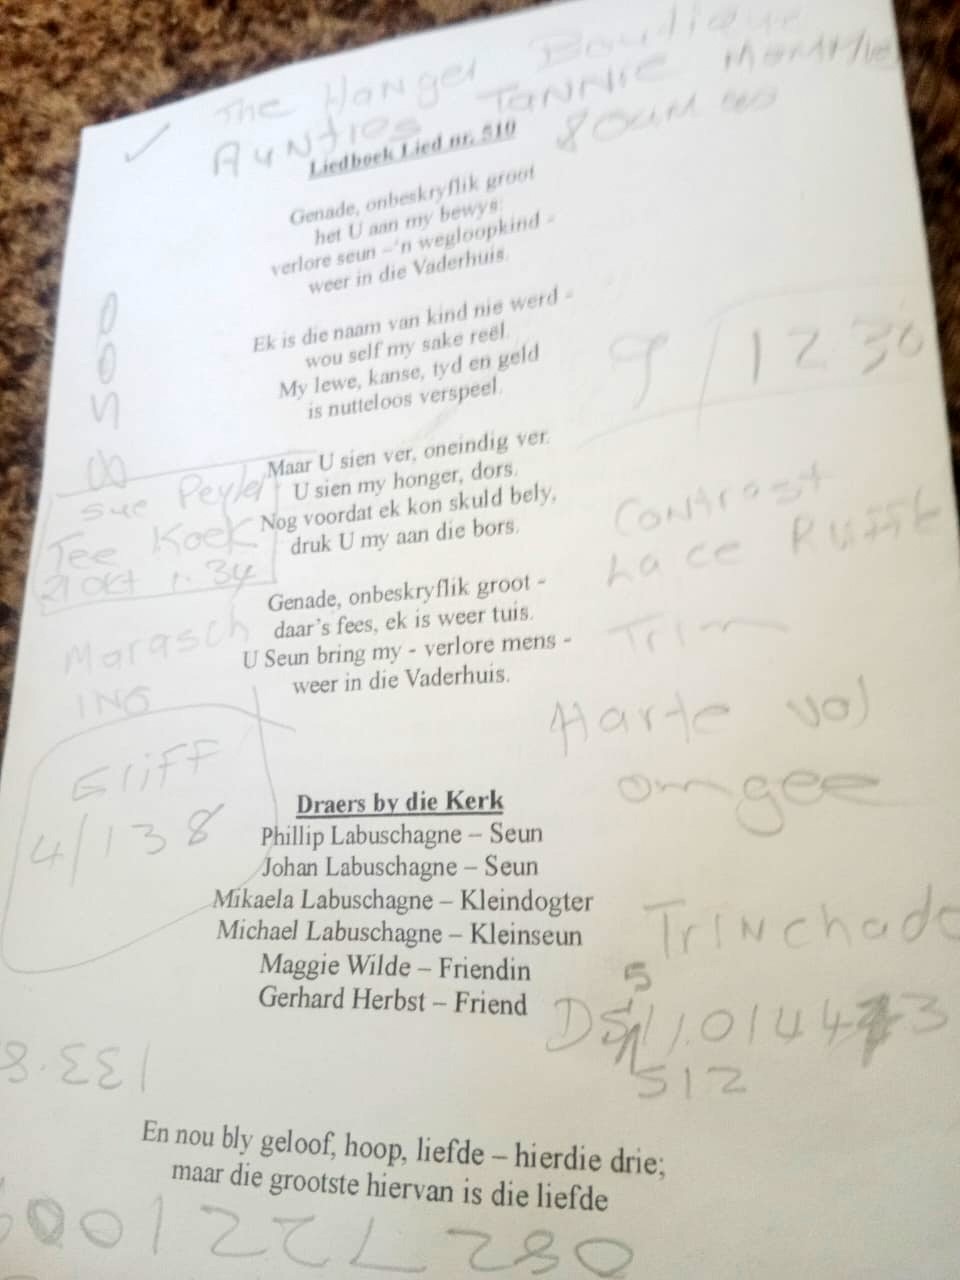 The Hanger Boutique
Aunties Tannie
Liedboek Lied nr. 510
Genade, onbeskryflik groot
het U aan my bewys:
verlore seun – 'n wegloopkind -
weer in die Vaderhuis.
Ek is die naam van kind nie werd -
wou self my sake reël.
My lewe, kanse, tyd en geld
is nutteloos verspeel.
9/12 30
Maar U sien ver, oneindig ver.
U sien my honger, dors.
Nog voordat ek kon skuld bely,
druk U my aan die bors.
Sue
Tee Koek
21 Okt 1.34
Contrast
Lace
Trim
Genade, onbeskryflik groot -
daar's fees, ek is weer tuis.
U Seun bring my - verlore mens -
weer in die Vaderhuis.
Marasch
ING
Harte vol
omgee
4/138
Draers by die Kerk
Phillip Labuschagne – Seun
Johan Labuschagne – Seun
Mikaela Labuschagne – Kleindogter
Michael Labuschagne – Kleinseun
Maggie Wilde – Friendin
Gerhard Herbst – Friend
Trinchado
512
En nou bly geloof, hoop, liefde – hierdie drie;
maar die grootste hiervan is die liefde